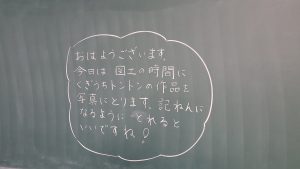 おはようございます。
今日は図工の時間に
くぎうちトントンの作品を
写真にとります。記ねんに
なるように とれると
いいですね!